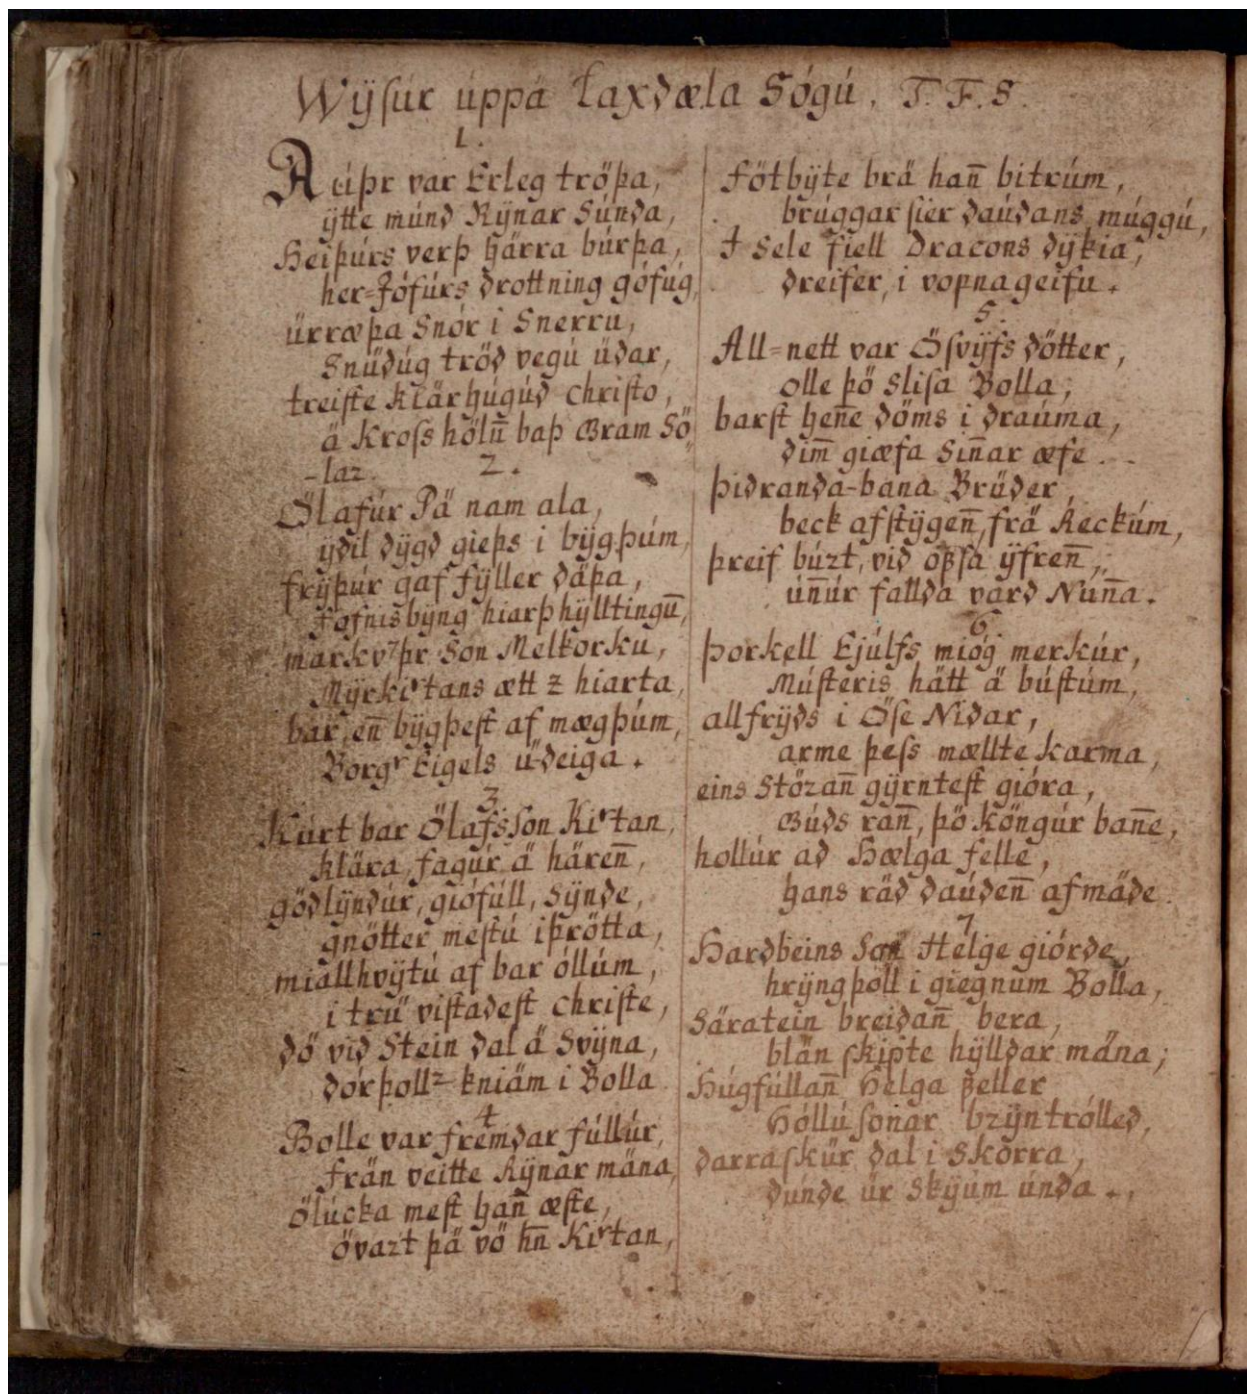 Wÿſúr úppä Laxdæla Sógú. T. F. S.
1.
Aúþr var Erleg tröþa,
ÿtte múnd Rÿnar Súnda,
Heiþúrs verþ härra búrþa,
her=Jófúrs drottning gófúg,
úrræþa Snór i Snerru,
Snúdúg tröd vegú údar,
treiſte klär húgúd Chriſto,
ä Kroſs hölū baþ Gram Sö
-laz.
2.
Ölafúr Pä nam ala,
ÿdil dÿgd gieþs i bÿgþúm,
frÿþúr gaf fÿller däþa,
fofnis bÿng hiarþ hÿlltingū,
markv þr Son Melkorku,
Mÿrkiʳtans ætt z hiarta,
bar en̄ bÿgþeſt af mægþúm,
Borgʳ Eigels údeiga.
3.
Kúrt bar Ölafsſon Kiʳtan,
klära, fagúr ä hären̄,
gödlÿndúr, giófúll, Sÿnde,
gnötter meſtú iþrötta,
miallhvÿtú af bar óllúm,
i trú viſtadeſt Chriſte,
dö vid Stein dal ä Svÿna,
dór þollz kniäm i Bolla
4
Bolle var fremdar fúllúr,
frän veitte Rÿnar mäna,
ölúcka meſt han̄ æſte,
övazt þä vö hn̄ Kiʳtan,
fötbÿte brä han̄ bitrúm,
brúggar ſier daúdans múggú,
I Sele fiell Dracons dÿkia,
dreifer, i vopnageifu.
5.
All=nett var Öſvÿfs dötter,
olle þö Sliſa Bolla,
barſt hen̄e döms i draúma,
dim̄ giæfa Sin̄ar æfe.
þidranda-bana Brúder,
beck afſtÿgen̄, frä Reckúm,
þreif búzt, vid oþſa ÿfren̄,
ún̄úr fallda vard Nún̄a.
6
þorkell Ejúlfs mióg merkúr,
Múſteris hätt ä búſtúm,
allfrÿds i Öſe Nidar,
arme þeſs mællte karma,
eins Stözan̄ gÿrnteſt gióra,
Gúds ran̄, þö köngúr ban̄e,
hollúr ad Hælga felle,
hans räd daúden̄ afmäde.
7
Hardbeins Son Helge giórde,
hrÿng þöll i giegnúm Bolla,
Säratein breidan̄ bera,
blän ſkipte hÿlldar mäna;
Húgfúllan̄ Helga feller
Hóllú ſonar brÿntrólled,
darraſkúr dal i Skorra,
dúnde úr Skÿúm únda.